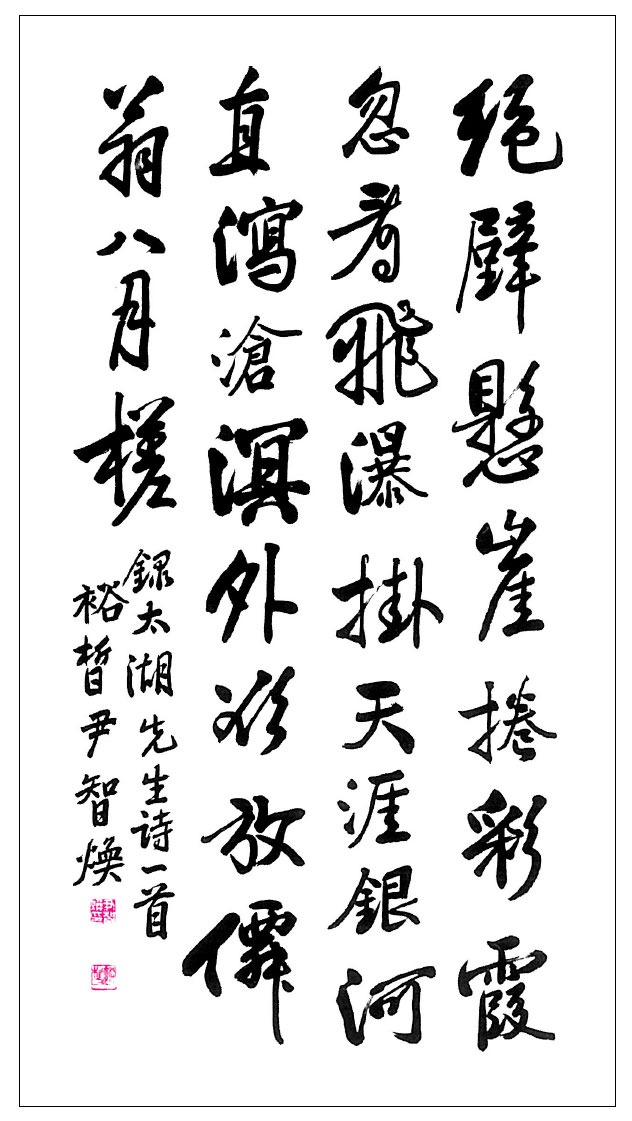 絶壁懸崖捲彩霞
忽看飛瀑掛天涯銀河
直瀉滄溟外欲放僊
翁八月槎
錄太湖先生詩一首
裕晳尹智煥